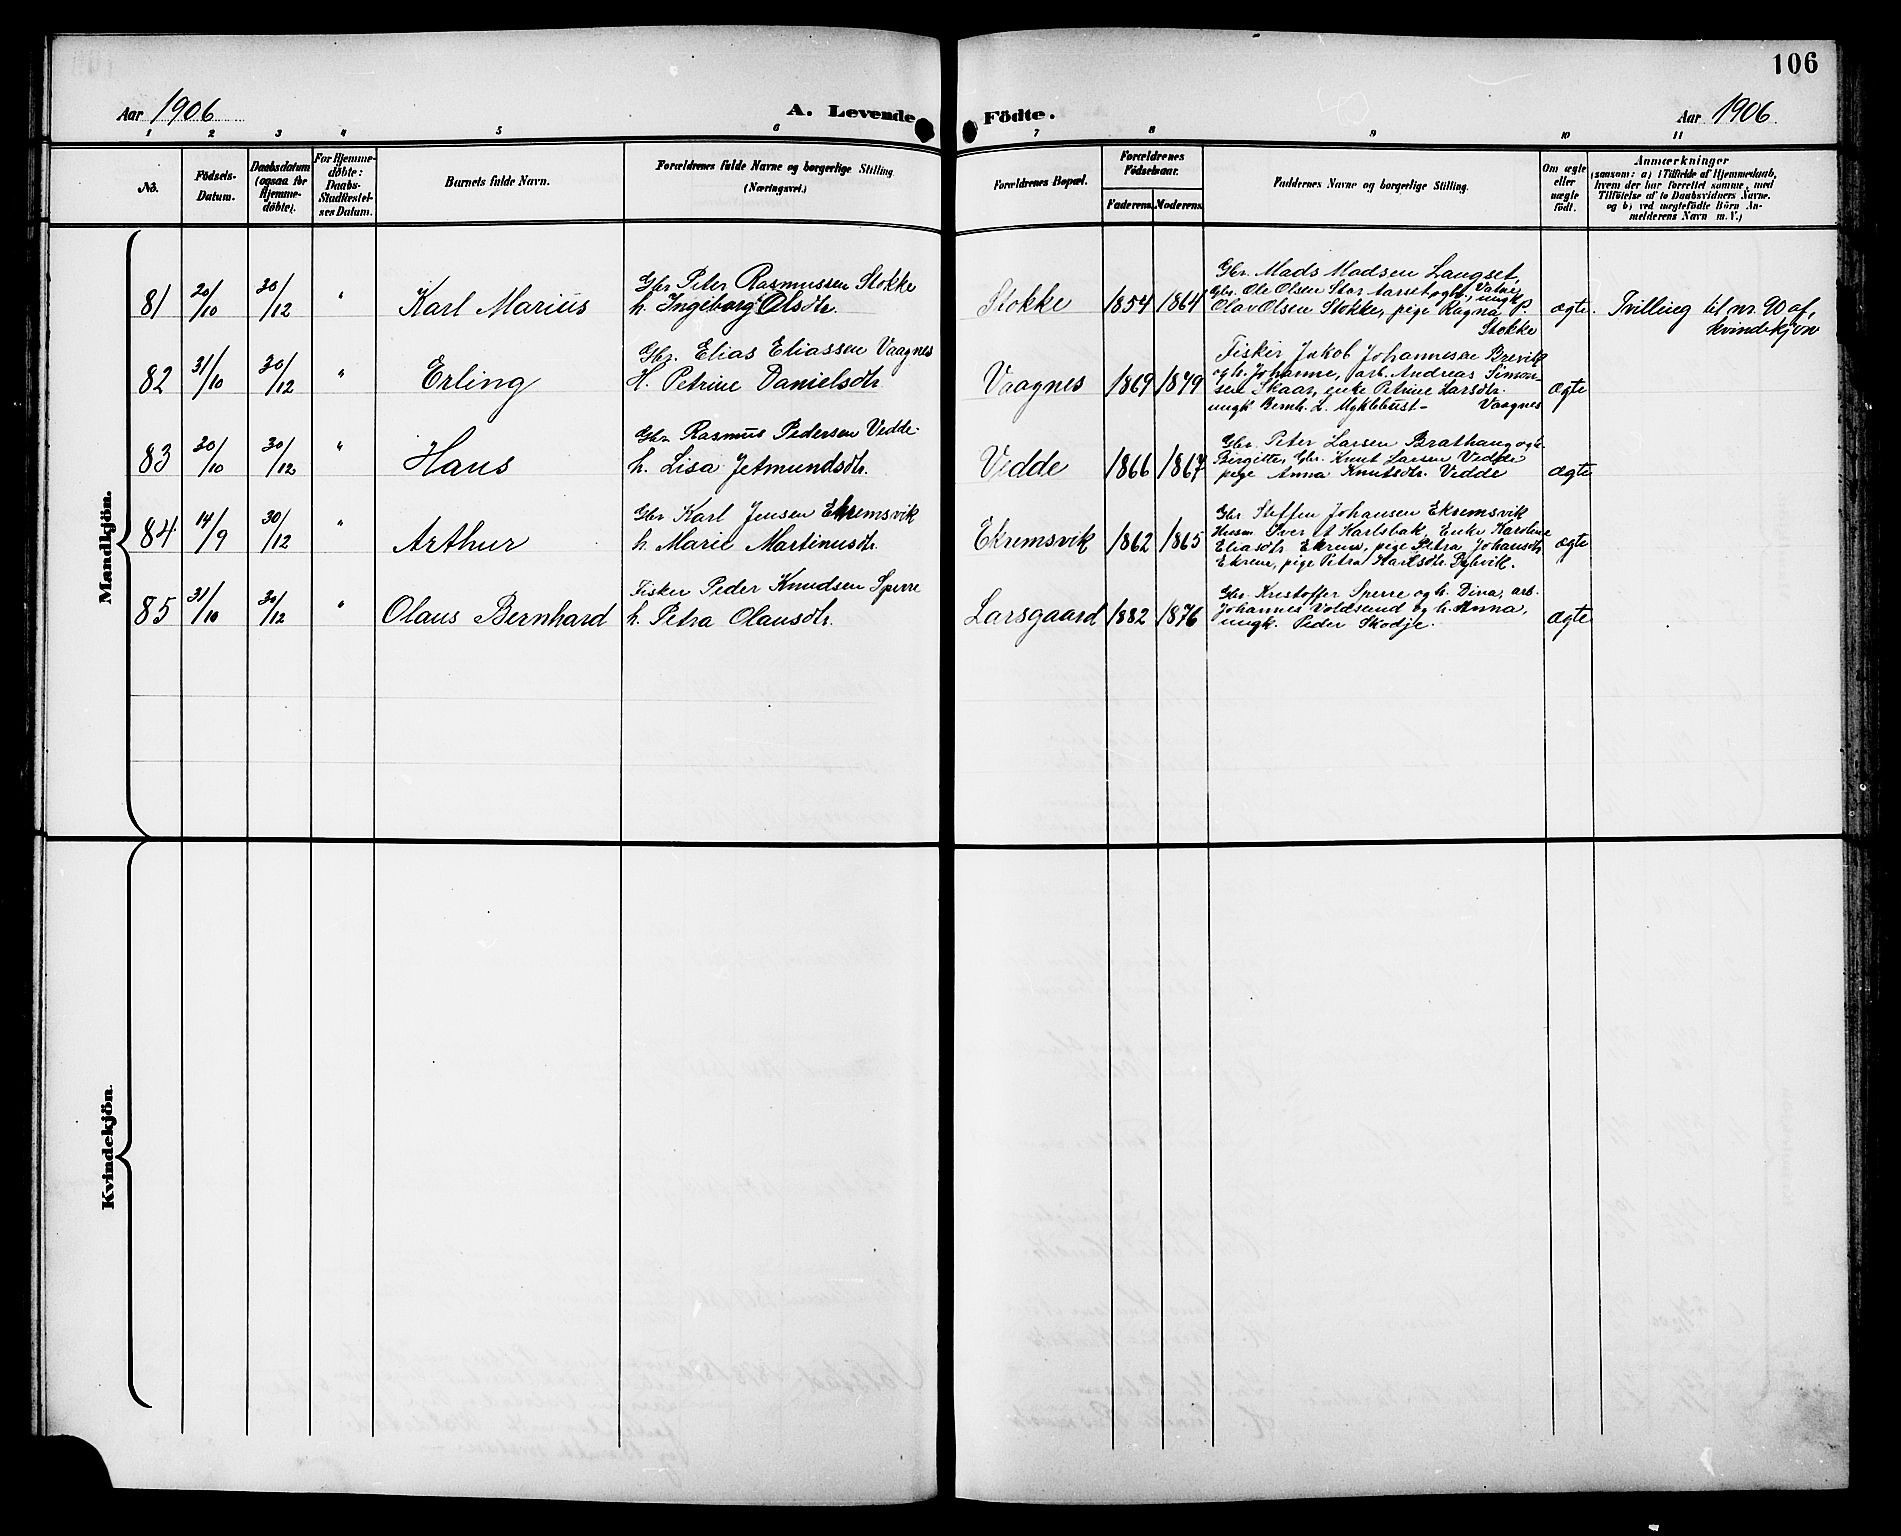 106
Aar 1906
A. Levende Födte.
Aar 1906.
1 2 3 4 5 6 7 8 9 10 11
No.
Födsels-
Datum.
Daabsdatum
(ogsaa for
Hjemme-
døbte).
For Hjemme-
døbte:
Daabs-
Stadfæstel-
ses Datum.
Barnets fulde Navn.
Forældrenes fulde Navne og borgerlige Stilling
(Næringsvei.)
Forældrenes Bopæl.
Forældrenes
Födselsaar.
Faderens. Moderens.
Faddernes Navne og borgerlige Stilling.
Om ægte
eller
uægte
født.
Anmærkninger
(saasom: a) i Tilfælde af Hjemmedaab,
hvem der har forrettet samme, med
Tilföielse af to Daabsvidners Navne.
og b) ved uægtefödte Börn An-
melderens Navn m. V.)
Mandkjön.
81 20/10 30/12 " Karl Marius
Gbr Peter Rasmussen Stokke
h. Ingeborg Olsdtr.
Stokke 1854 1864
Gbr. Mads Madsen Langset,
Gbr. Ole Olsen Stor Aarset og Vatne, ungk.
Olav Olsen Stokke, pige Ragna P.
Stokke
ægte
Tvilling til nr. 90 af
kvindekjøn
82 31/10 30/12 " Erling
Gbr. Elias Eliassen Vaagnes
H. Petrine Danielsdtr.
Vaagnes 1869 1879
Fisker Jakob Johannesen Brevik
og h. Johanne, arb. Andreas Simon-
sen Skaar, enke Petrine Larsdtr.
ungk. Bernh. L. Myklebust - Vaagnes
ægte
83 20/10 30/12 " Hans
Gbr Rasmus Pedersen Vedde.
h. Lisa Jetmundsdtr.
Vedde 1866 1867
Gbr. Peter Larsen Brathaug og
Birgitte, Gbr. Knut Larsen Vedde
pige Anna Knutsdtr. Vedde
ægte
84 14/9 30/12 " Arthur
Gbr. Karl Jensen Ekremsvik
h. Marie Martinusdtr.
Ekremsvik 1862 1865
Gbr Steffen Johansen Ekremsvik
Husm Iver A Karlsbak, Enke Karoline
Eliasdtr. Ekrem, pige Petra Johansdtr
Ekrem, pige Petra Karlsdtr. Dybvik.
ægte
85 31/10 30/12 " Olaus Bernhard
Fisker Peder Knudsen Sperre
h. Petra Olausdtr.
Larsgaard 1882 1876
Gbr. Kristoffer Sperre og h. Dina, arb.
Johannes Voldsund og h. Anna,
ungk. Peder Skodje.
ægte
Kvindekjön.